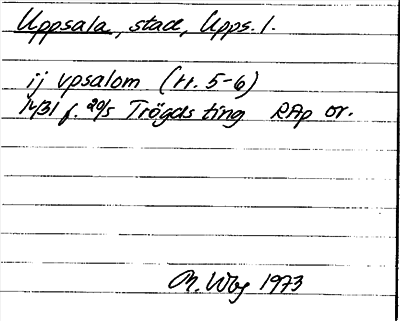 Uppsala, stad, Upps. l.
ij vpsalom (rr. 5-6)
1431 f. 20/5 Trögds ting RAp or.
1973